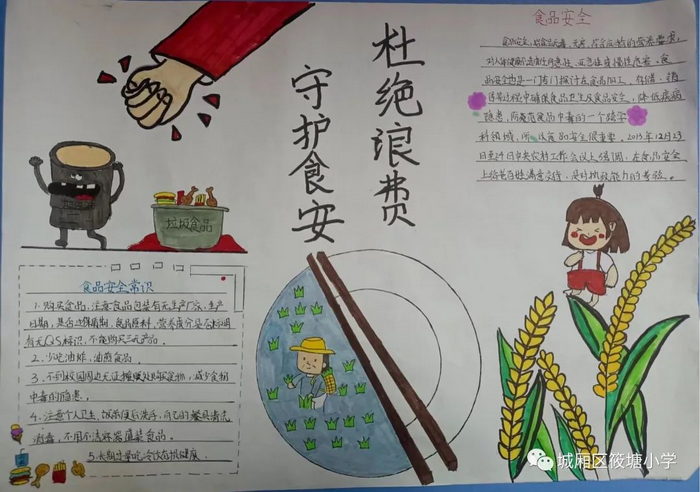 食品安全
食品安全,指食品无毒、无害,符合应当有的营养要求,
对人体健康不造成任何急性、亚急性或慢性危害。食
品安全也是一门专门探讨在食品加工、存储、销
售等过程中确保食品卫生及食品安全,降低疾病
隐患,防范食品中毒的一个跨学
科领域,所以食品安全很重要。2013年12月23
日至24日中央农村工作会议上强调,在食品安全
上给老百姓满意交待,是对执政能力的考验。
杜绝浪费
守护食安
垃圾食品
食品安全常识
1.购买食品,注意食品包装有无生产厂家、生产
日期,是否过保质期,食品原料,营养成分是否标明
有无QS标识,不能购买三无产品。
2.少吃油炸、油煎食品。
3.不到校园周边无证摊贩处购买食物,减少食物
中毒的隐患。
4.注意个人卫生,饭前便后洗手,自己的餐具清洗
消毒,不用不洁容器盛装食品。
5.长期过量吃冷饮有损健康。
城厢区筱塘小学